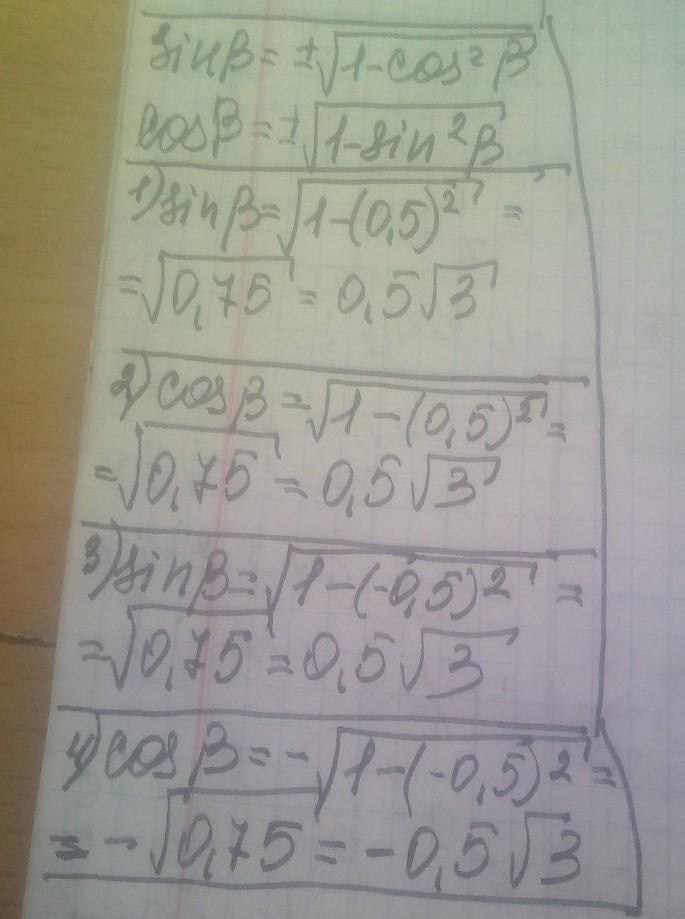 sinβ = ±√1-cos²β
cosβ = ±√1-sin²β
1) sinβ = √1-(0,5)² =
= √0,75 = 0,5√3
2) cosβ = √1-(0,5)² =
= √0,75 = 0,5√3
3) sinβ = √1-(-0,5)² =
= √0,75 = 0,5√3
4) cosβ = -√1-(-0,5)² =
= -√0,75 = -0,5√3